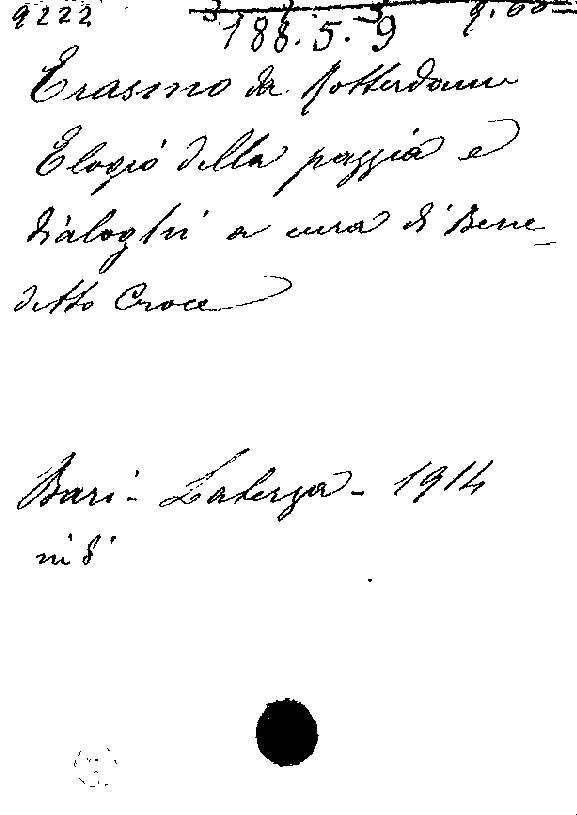 9222
188.5.9
Erasmo da Rotterdam
Elogio della pazzia e
dialoghi a cura di Bene-
detto Croce
Bari - Laterza - 1914
in 8